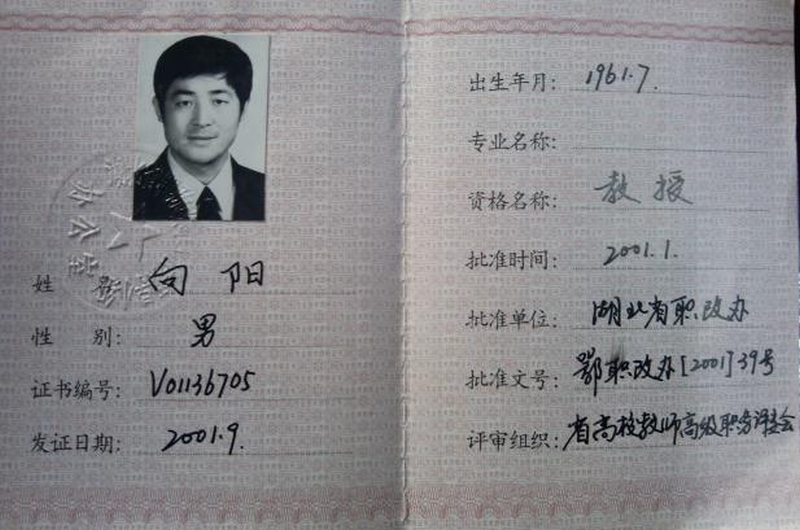 姓 名: 向阳
性 别: 男
证书编号: V01136705
发证日期: 2001.9.
出生年月: 1961.7.
专业名称:
资格名称: 教授
批准时间: 2001.1.
批准单位: 湖北省职改办
批准文号: 鄂职改办[2001]39号
评审组织: 省高校教师高级职务评委会